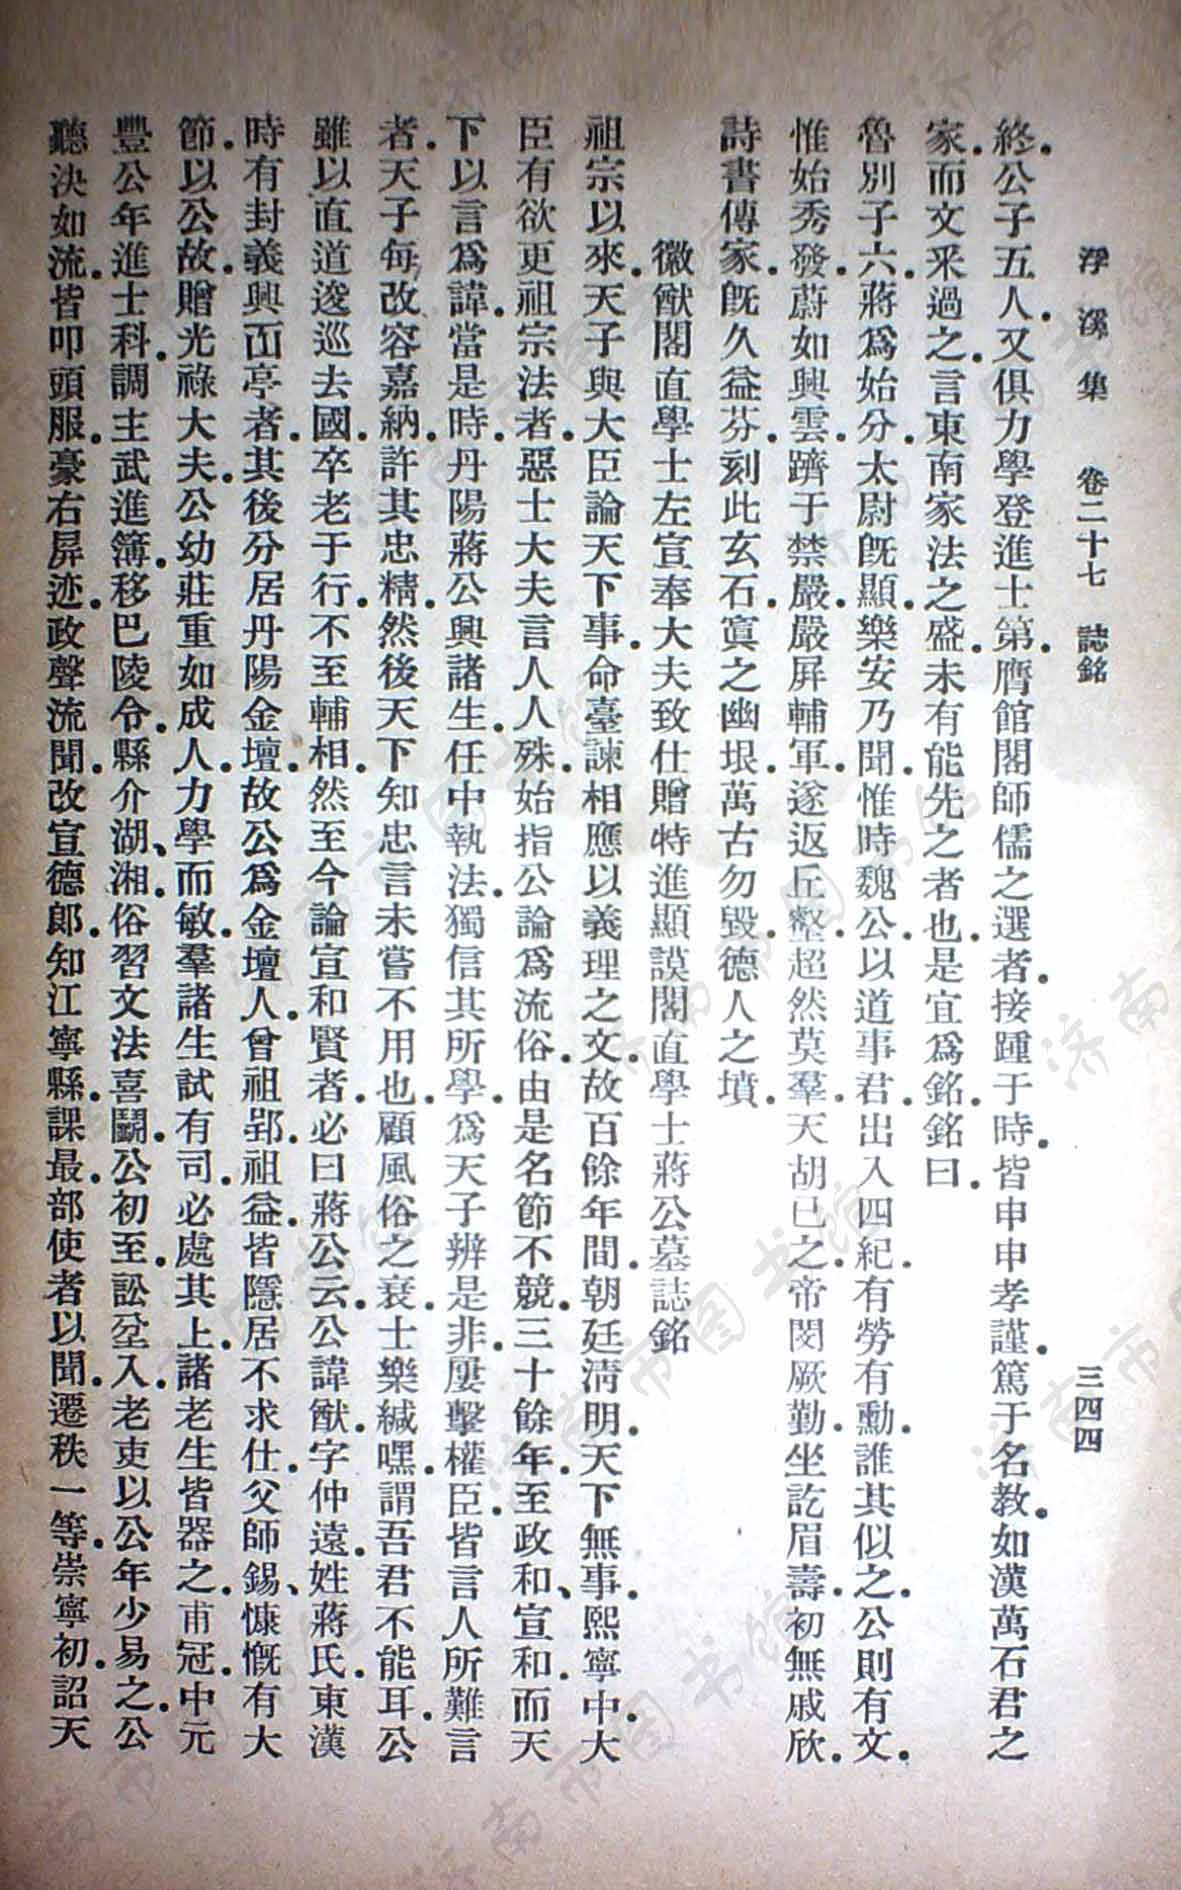 浮溪集　卷二十七　誌銘　三四四
終。公子五人。又俱力學登進士第。膺館閣師儒之選者。接踵于時。皆申申孝謹。篤于名教。如漢萬石君之
家。而文采過之。言東南家法之盛。未有能先之者也。是宜爲銘。銘曰。
魯別子六。蔣爲始分。太尉旣顯。樂安乃聞。惟時魏公。以道事君。出入四紀。有勞有勳。誰其似之。公則有文。
惟始秀發。蔚如興雲。躋于禁嚴。嚴屏輔軍。遂返丘壑。超然莫羣。天胡已之。帝閔厥勤。坐訖眉壽。初無戚欣。
詩書傳家。旣久益芬。刻此玄石。寘之幽垠。萬古勿毀。德人之墳。
徽猷閣直學士左宣奉大夫致仕贈特進顯謨閣直學士蔣公墓誌銘
祖宗以來。天子與大臣論天下事。命臺諫相應以義理之文。故百餘年間。朝廷淸明。天下無事。熙寧中。大
臣有欲更祖宗法者。惡士大夫言人人殊。始指公論爲流俗。由是名節不競。三十餘年。至政和、宣和。而天
下以言爲諱。當是時。丹陽蔣公興諸生。任中執法。獨信其所學。爲天子辨是非。屢擊權臣。皆言人所難言
者。天子每改容嘉納。許其忠精。然後天下知忠言未嘗不用也。顧風俗之衰。士樂緘嘿。謂吾君不能耳。公
雖以直道逡巡去國。卒老于行。不至輔相。然至今論宣和賢者。必曰蔣公云。公諱猷。字仲遠。姓蔣氏。東漢
時有封義興𠙽亭者。其後分居丹陽金壇。故公爲金壇人。曾祖郢。祖益。皆隱居不求仕。父師錫、慷慨有大
節。以公故。贈光祿大夫。公幼莊重如成人。力學而敏。羣諸生試有司。必處其上。諸老生皆器之。甫冠。中元
豐公年進士科。調主武進簿。移巴陵令。縣介湖、湘。俗習文法喜鬭。公初至。訟坌入。老吏以公年少易之。公
聽決如流。皆叩頭服。豪右屏迹。政聲流聞。改宣德郞。知江寧縣。課最。部使者以聞。遷秩一等。崇寧初。詔天